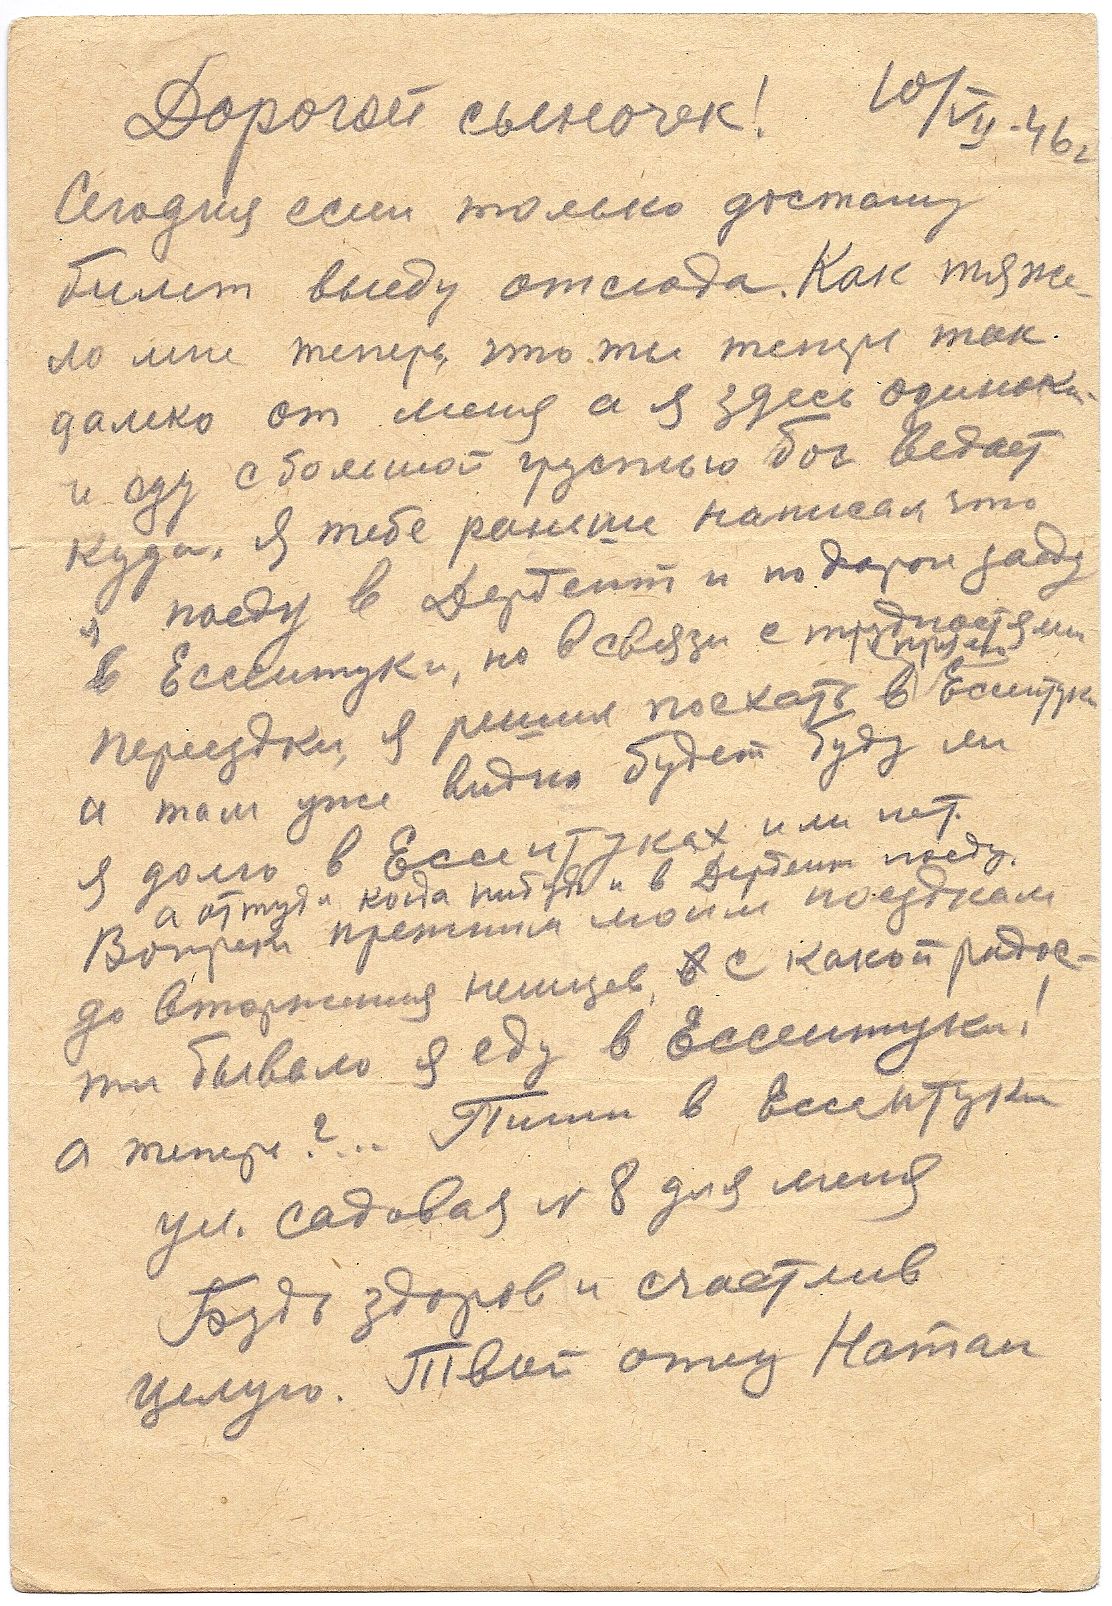 10/VII-46г
Дорогой сыночек!
Сегодня если только достану
билет выеду отсюда. Как тяже-
ло мне теперь, что ты теперь так
далеко от меня а я здесь одинокий
и еду с большой грустью бог ведает
куда. Я тебе раньше написал что
я поеду в Дербент и по дороге заеду
в Ессентуки, но в связи с трудностями
переездки, я решил поехать в Ессентуки
а там уже видно будет буду ли
я долго в Ессентуках или нет.
а оттуда когда нибудь и в Дербент поеду.
Вопреки прежним моим поездкам
до вторжения немцев, с какой радос-
ти бывало я еду в Ессентуки!
А теперь?... Пиши в Ессентуки
ул. Садовая N 8 для меня
Будь здоров и счастлив
Целую. Твой отец Натан